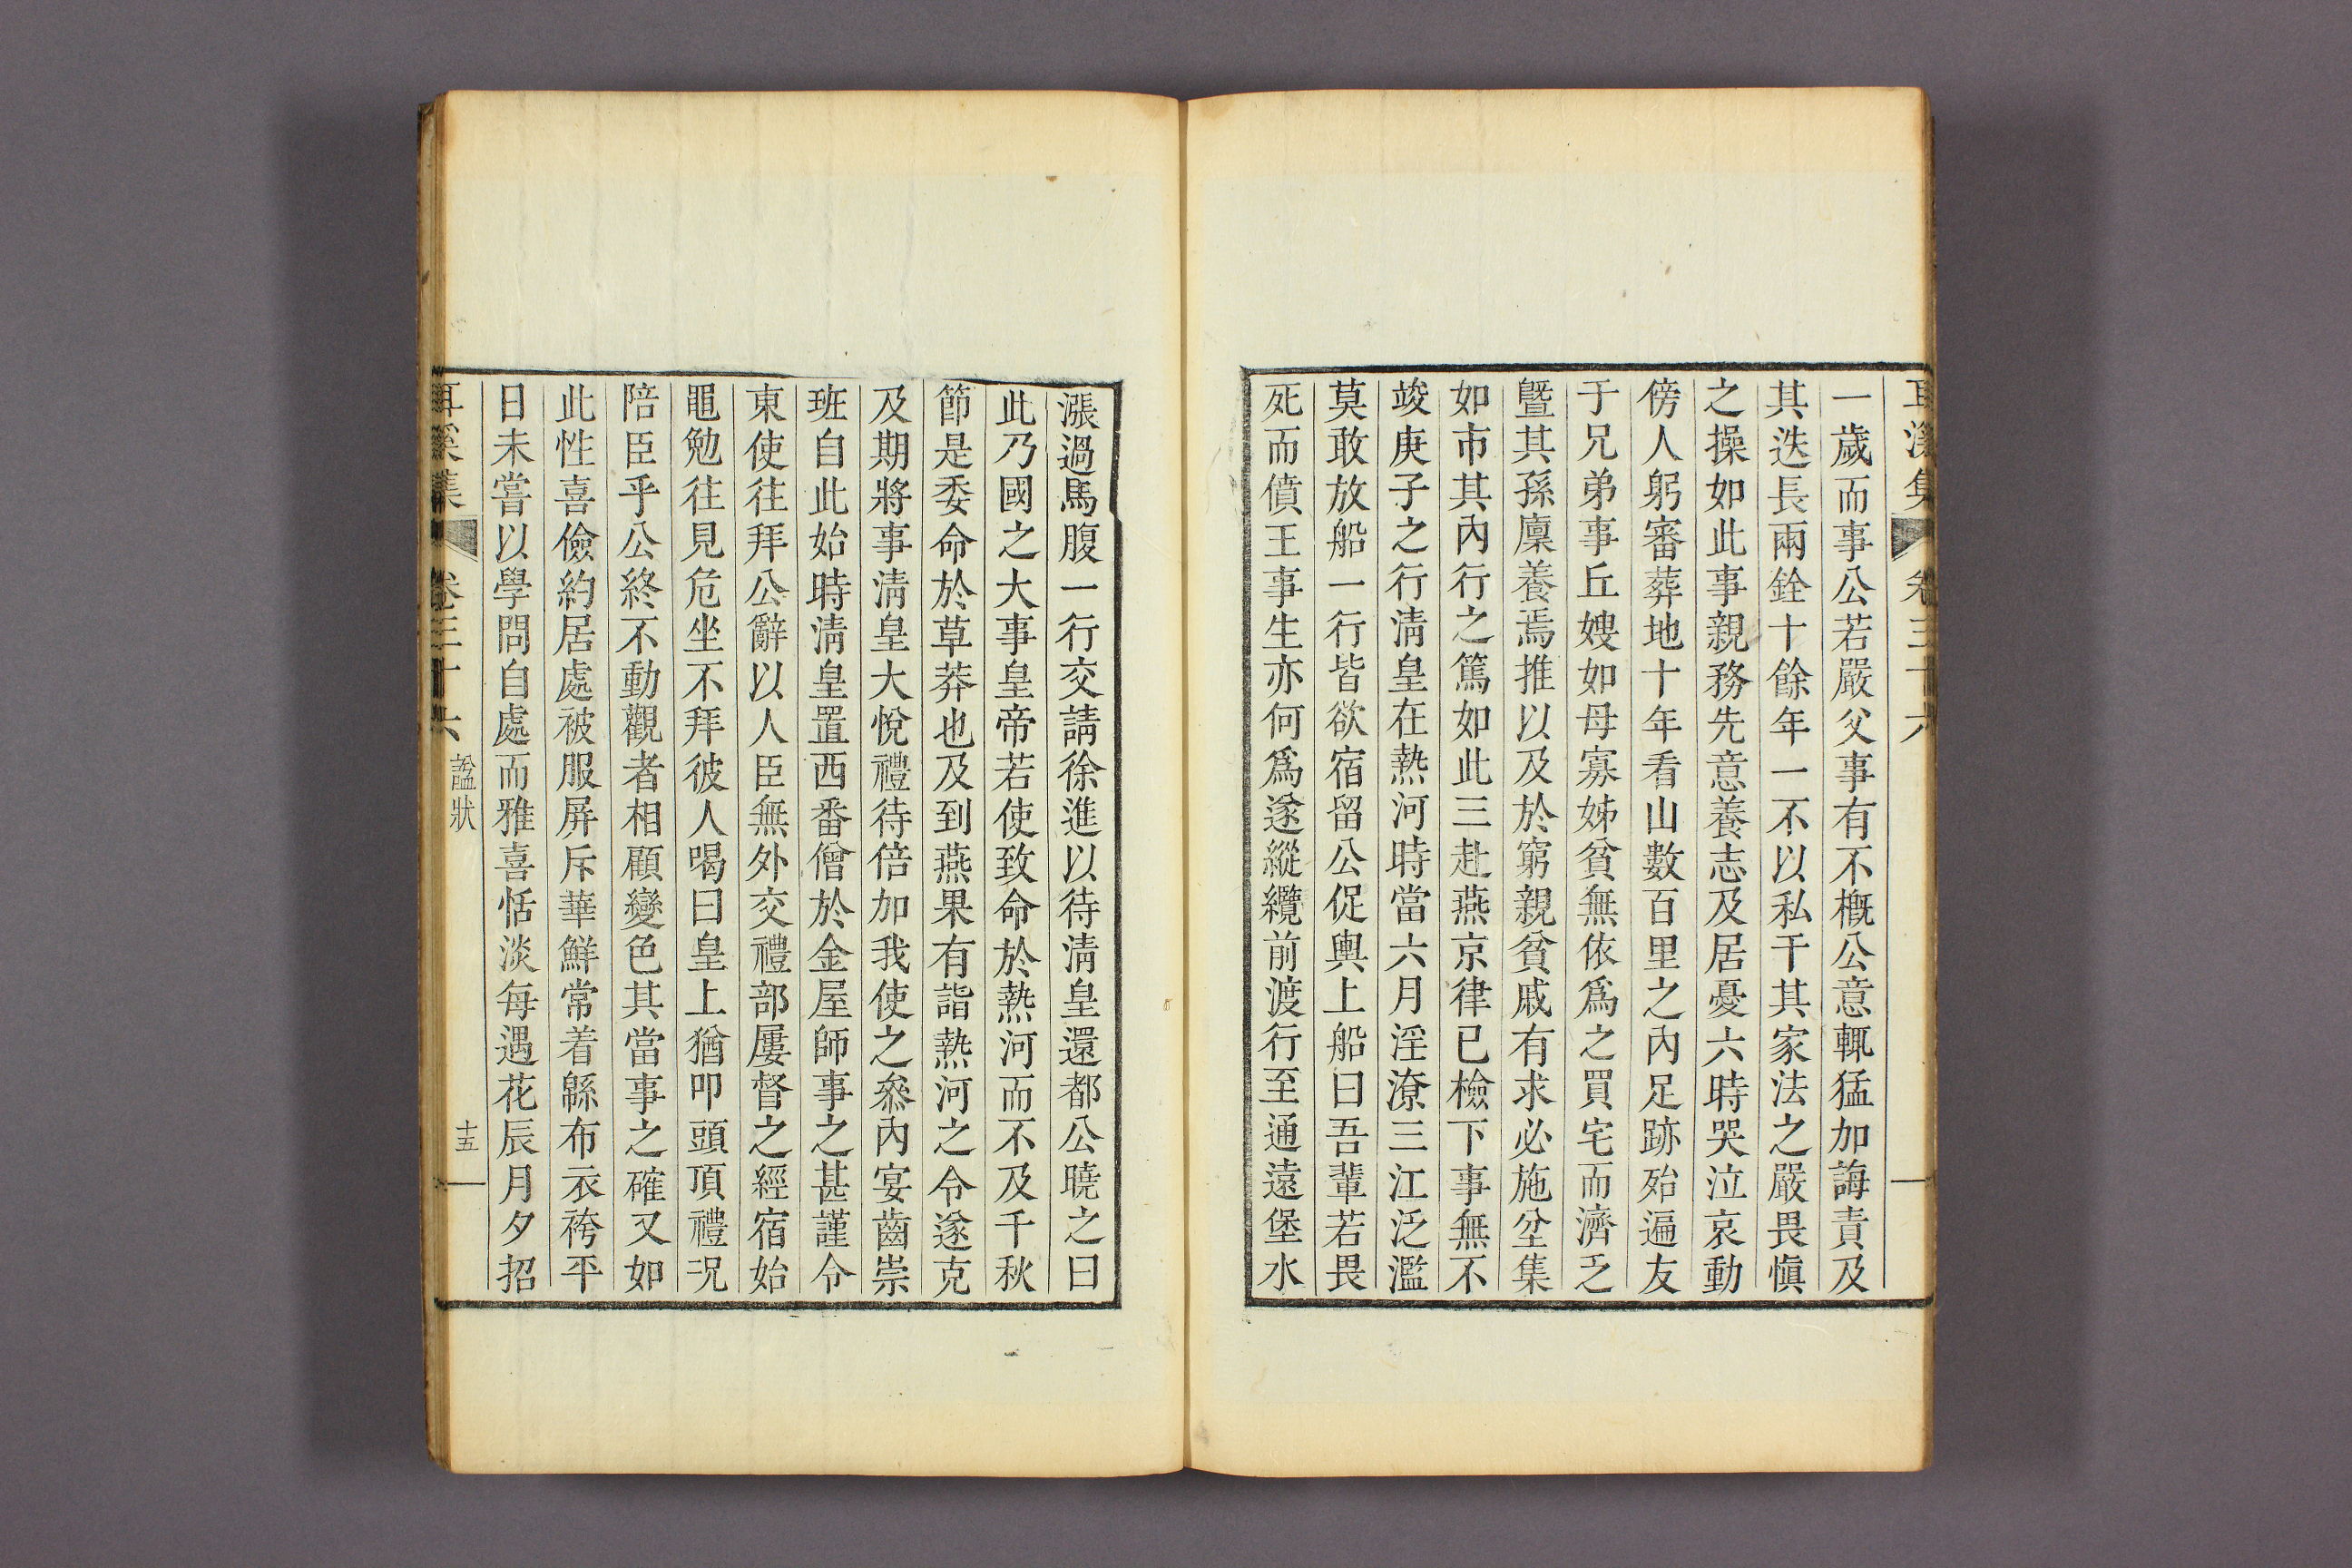 耳溪集 卷三十六
一歲而事公若嚴父事有不槪公意輒猛加誨責及
其迭長兩銓十餘年一不以私干其家法之嚴畏愼
之操如此事親務先意養志及居憂六時哭泣哀動
傍人躬審葬地十年看山數百里之內足跡殆遍友
于兄弟事丘嫂如母寡姊貧無依爲之買宅而濟之
曁其孫廩養焉推以及於窮親貧戚有求必施坌集
如市其內行之篤如此三赴燕京律已檢下事無不
竣庚子之行淸皇在熱河時當六月淫潦三江泛濫
莫敢放船一行皆欲宿留公促輿上船曰吾輩若畏
死而僨王事生亦何爲遂縱纜前渡行至通遠堡水
漲過馬腹一行交請徐進以待淸皇還都公曉之曰
此乃國之大事皇帝若使致命於熱河而不及千秋
節是委命於草莽也及到燕果有詣熱河之令遂克
及期將事淸皇大悅禮待倍加我使之叅內宴齒崇
班自此始時淸皇置西番僧於金屋師事之甚謹令
東使往拜公辭以人臣無外交禮部屢督之經宿始
黽勉往見危坐不拜彼人喝曰皇上猶叩頭頂禮况
陪臣乎公終不動觀者相顧變色其當事之確又如
此性喜儉約居處被服屛斥華鮮常着緜布衣袴平
日未嘗以學問自處而雅喜恬淡每遇花辰月夕招
耳溪集 卷三十六 諡狀 十五